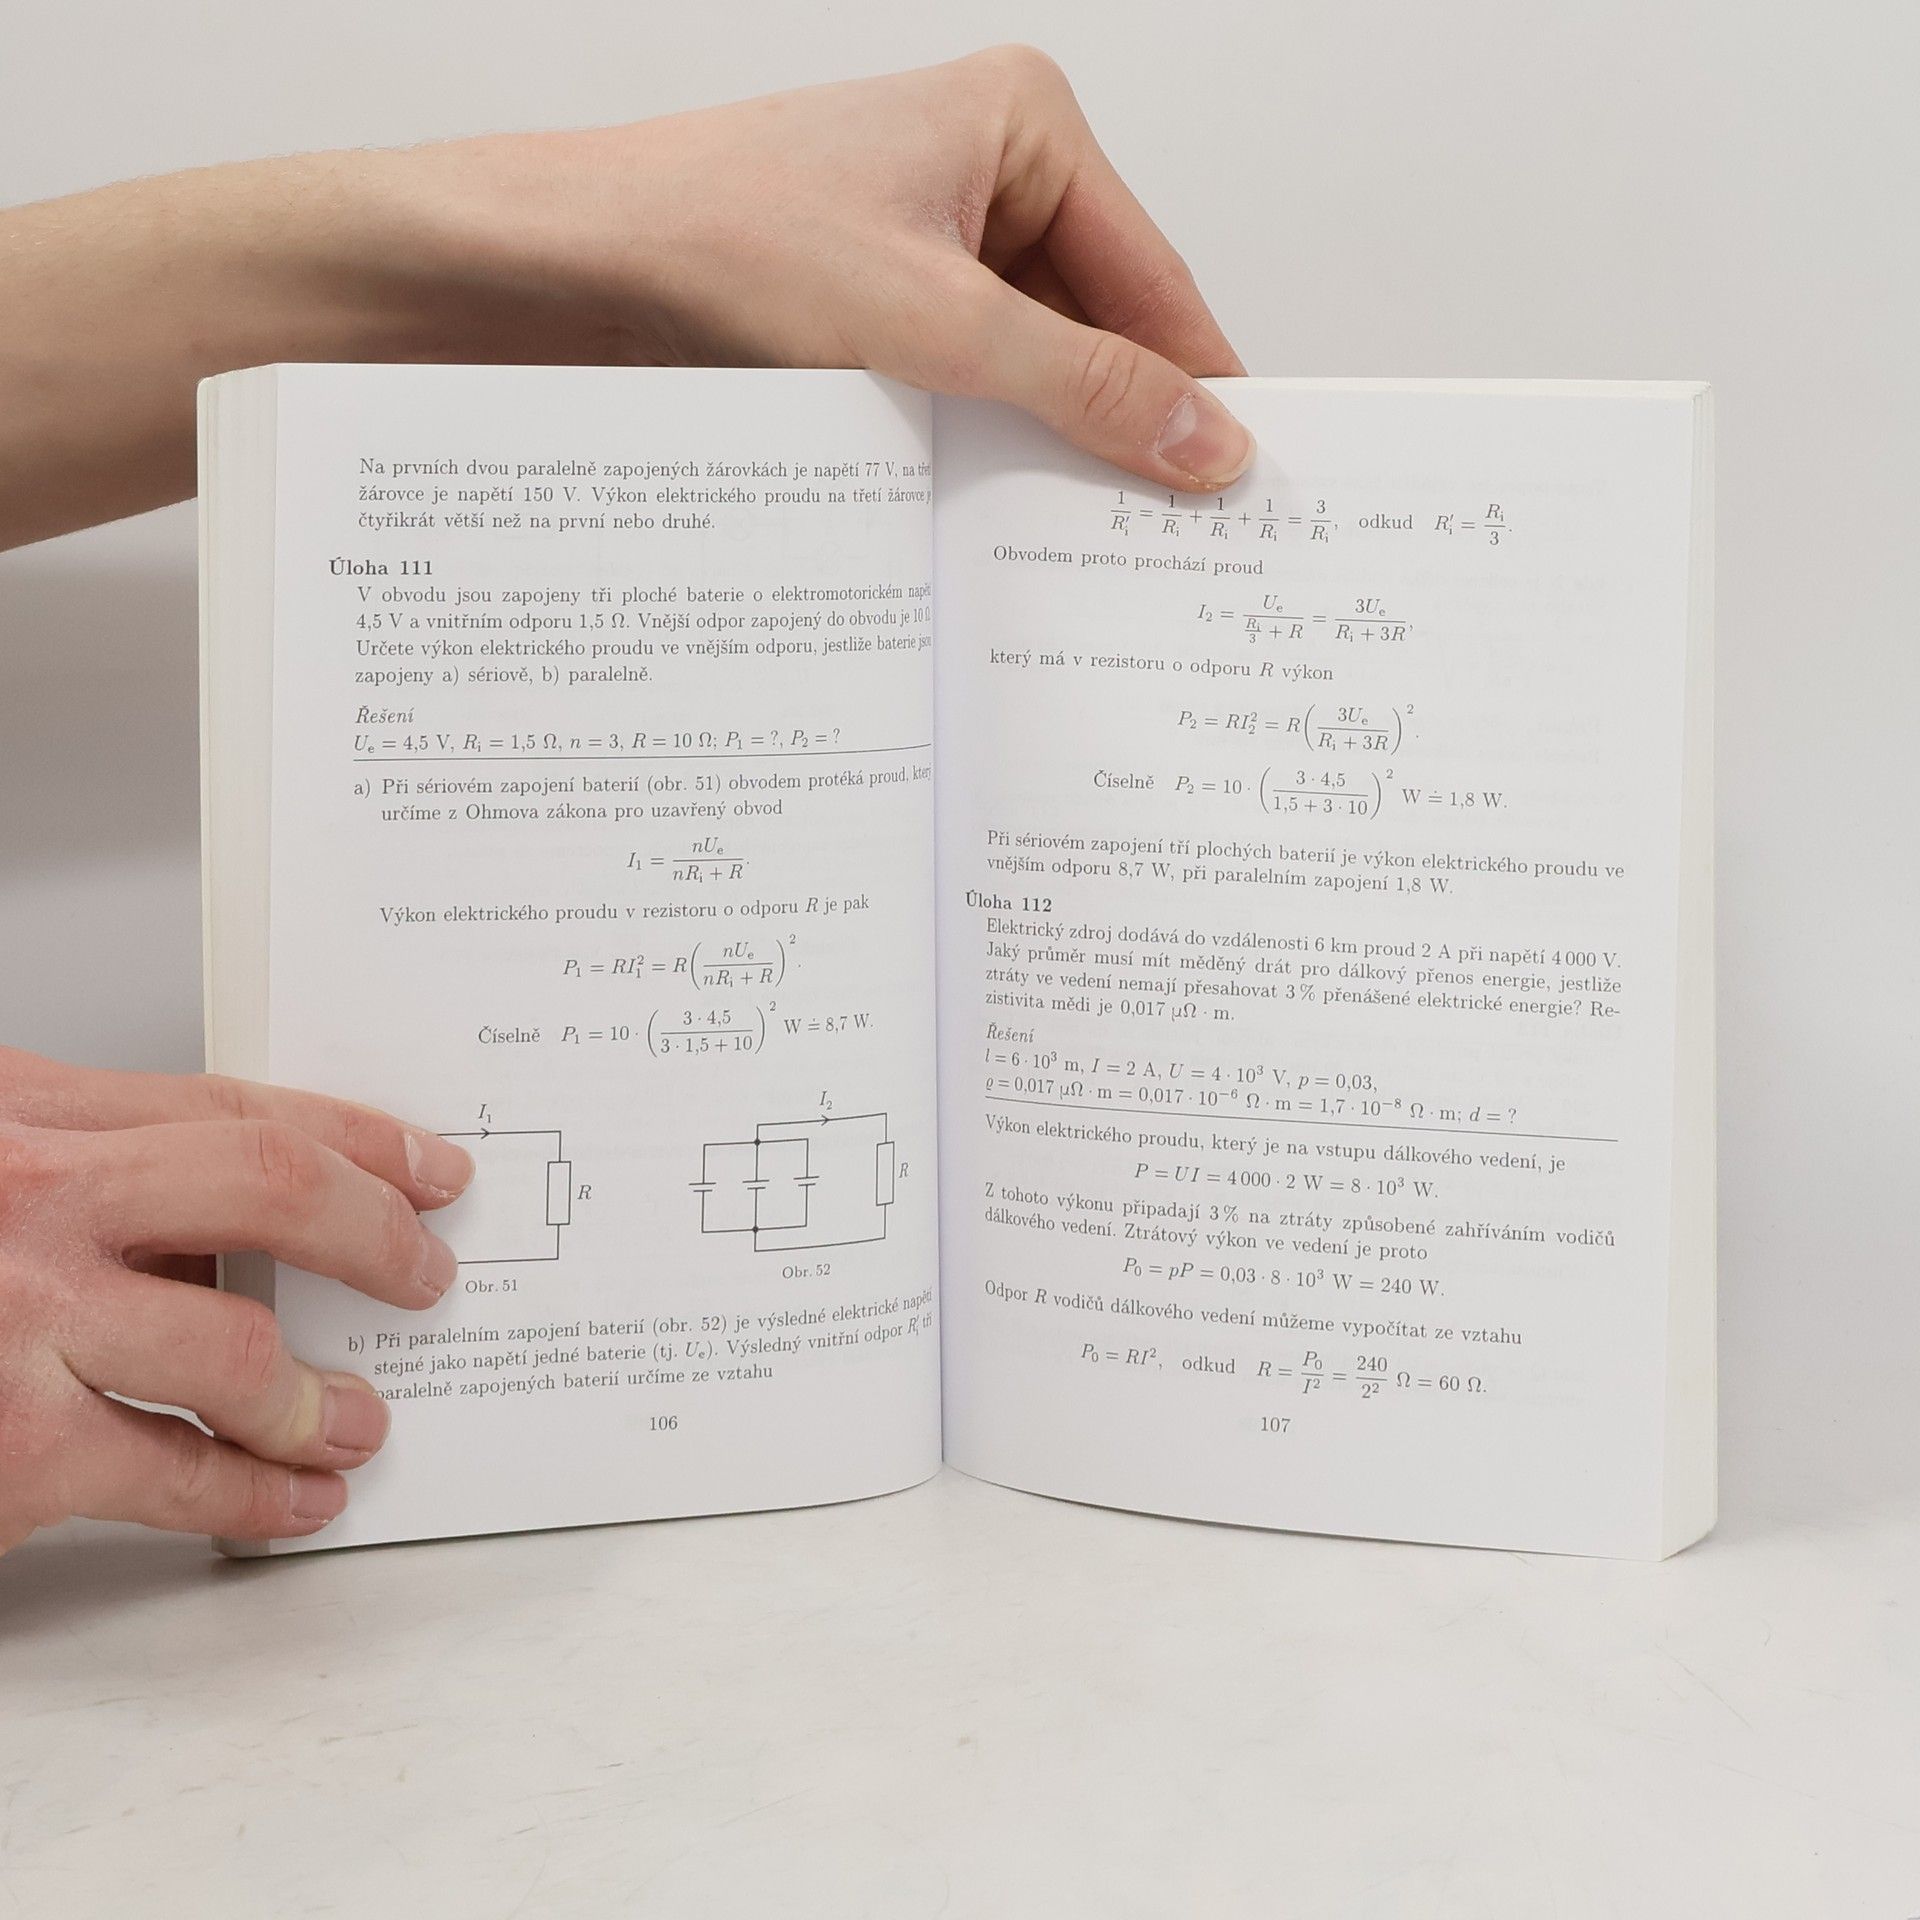 Na prvních dvou paralelně zapojených žárovkách je napětí 77 V, na
žárovce je napětí 150 V. Výkon elektrického proudu na třetí žárovce
čtyřikrát větší než na první nebo druhé.
Úloha 111
V obvodu jsou zapojeny tři ploché baterie o elektromotorickém
4,5 V a vnitřním odporu 1,5 Ω. Vnější odpor zapojený do obvodu je 10 Ω
Určete výkon elektrického proudu ve vnějším odporu, jestliže baterie
zapojeny a) sériově, b) paralelně.
Řešení
U_e = 4,5 V, R_i = 1,5 Ω, n = 3, R = 10 Ω; P_1 = ?, P_2 = ?
a) Při sériovém zapojení baterií (obr. 51) obvodem protéká proud,
určíme z Ohmova zákona pro uzavřený obvod
I_1 = nU_e / (nR_i + R).
Výkon elektrického proudu v rezistoru o odporu R je pak
P_1 = RI_1^2 = R(nU_e / (nR_i + R))^2.
Číselně P_1 = 10 · (3 · 4,5 / (3 · 1,5 + 10))^2 W ≐ 8,7 W.
I_1
R
Obr. 51
I_2
R
Obr. 52
b) Při paralelním zapojení baterií (obr. 52) je výsledné elektrické
stejné jako napětí jedné baterie (tj. U_e). Výsledný vnitřní odpor R'_i tří
paralelně zapojených baterií určíme ze vztahu
106
1/R'_i = 1/R_i + 1/R_i + 1/R_i = 3/R_i, odkud R'_i = R_i/3.
Obvodem proto prochází proud
I_2 = U_e / (R_i/3 + R) = 3U_e / (R_i + 3R),
který má v rezistoru o odporu R výkon
P_2 = RI_2^2 = R(3U_e / (R_i + 3R))^2.
Číselně P_2 = 10 · (3 · 4,5 / (1,5 + 3 · 10))^2 W ≐ 1,8 W.
Při sériovém zapojení tří plochých baterií je výkon elektrického proudu ve
vnějším odporu 8,7 W, při paralelním zapojení 1,8 W.
Úloha 112
Elektrický zdroj dodává do vzdálenosti 6 km proud 2 A při napětí 4 000 V.
Jaký průměr musí mít měděný drát pro dálkový přenos energie, jestliže
ztráty ve vedení nemají přesahovat 3 % přenášené elektrické energie? Re-
zistivita mědi je 0,017 μΩ · m.
Řešení
l = 6 · 10^3 m, I = 2 A, U = 4 · 10^3 V, p = 0,03,
ϱ = 0,017 μΩ · m = 0,017 · 10^−6 Ω · m = 1,7 · 10^−8 Ω · m; d = ?
Výkon elektrického proudu, který je na vstupu dálkového vedení, je
P = UI = 4 000 · 2 W = 8 · 10^3 W.
Z tohoto výkonu připadají 3 % na ztráty způsobené zahříváním vodičů
dálkového vedení. Ztrátový výkon ve vedení je proto
P_0 = pP = 0,03 · 8 · 10^3 W = 240 W.
Odpor R vodičů dálkového vedení můžeme vypočítat ze vztahu
P_0 = RI^2, odkud R = P_0/I^2 = 240/2^2 Ω = 60 Ω.
107